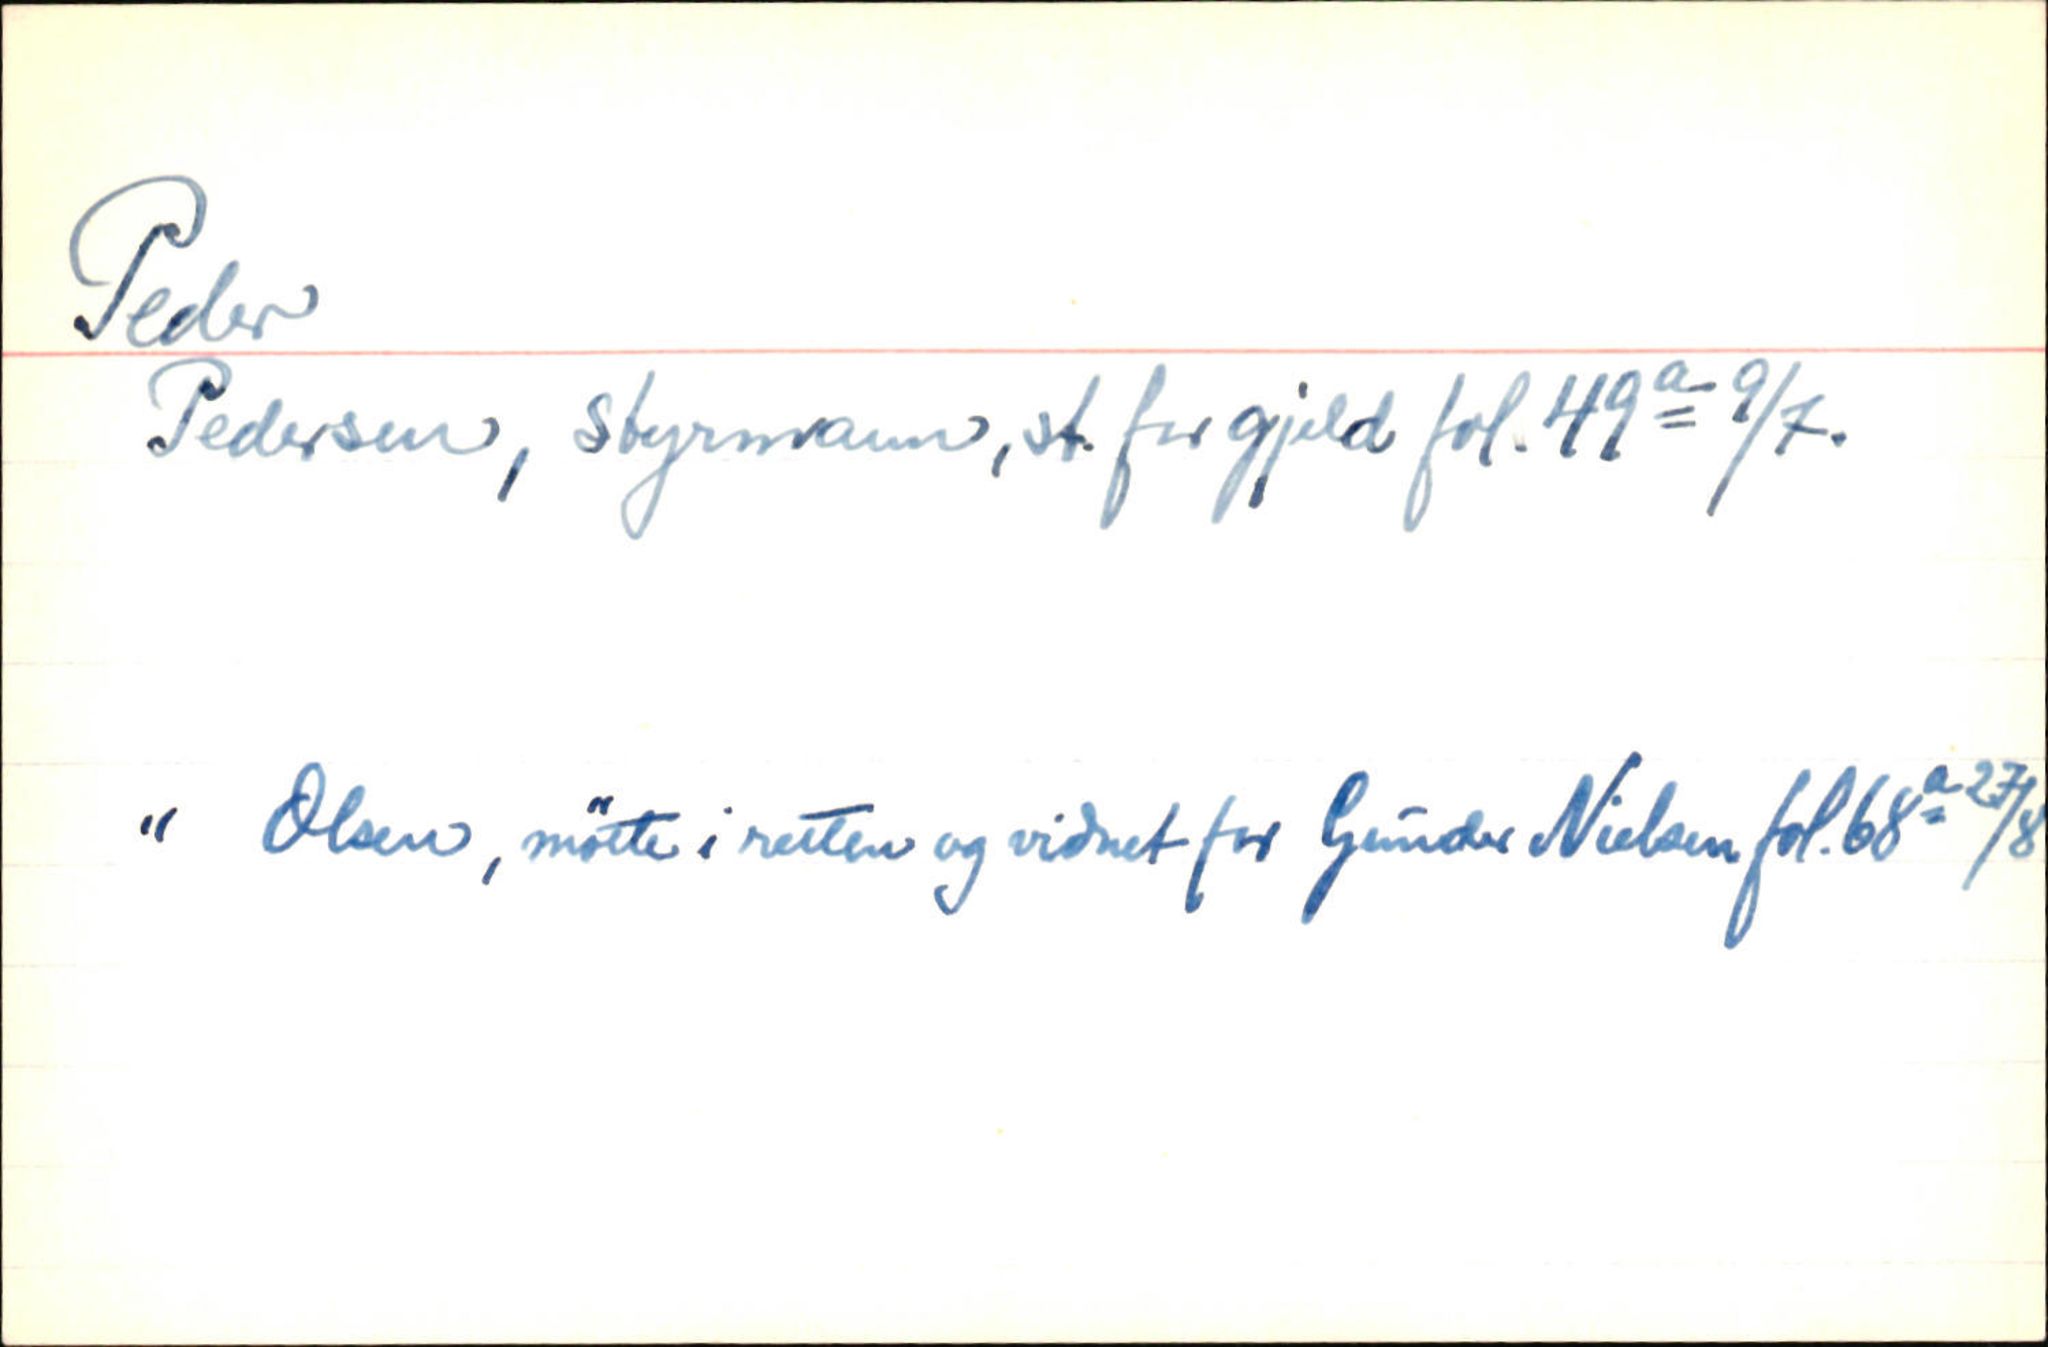 Peder
Pedersen, styrmann, st. for gjeld fol. 49a 9/7.
" Olsen, mötte i retten og vidnet for Gunder Nielsen fol. 68a 27/8